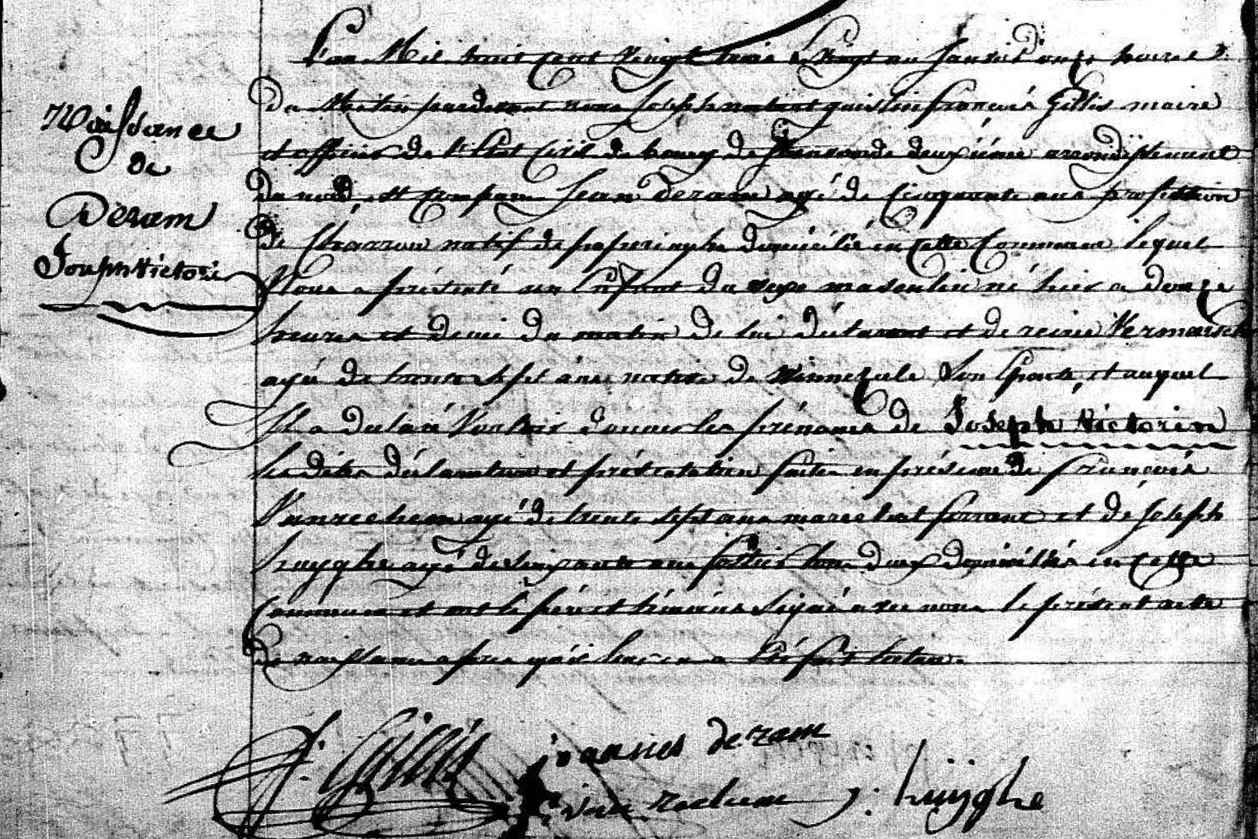 Naissance
de
Deram
Joseph Victorin
L'an Mil huit cent vingt trois le vingt un Janvier onze heures
du Matin pardevant nous Joseph guislin françois Gillis maire
et officier de l'Etat Civil du bourg de deuxième arrondissement
du nord est comparu Jean Deram agé de Cinquante ans profession
de Charron natif de poperinghe domicilié en cette Commune lequel
Nous a présenté un Enfant du sexe masculin né hier a douze
heures et demi du matin de lui déclarant et de reine Vermersch
agée de trente sept ans native de Winnezeele son Epouse, et auquel
Il a déclaré Vouloir donner les prénoms de Joseph Victorin
les dites déclaration et présentation faites en présence de françois
Vanrechem agé de trente sept ans marechal ferrant et de Joseph
huyghe agé de ans tous deux domiciliés en cette
Commune et ont le père et témoins Signé avec nous le présent acte
de naissance après qu'il leur en a Eté fait lecture.
F. Gillis
joannes deram
van rechem
j: huijghe